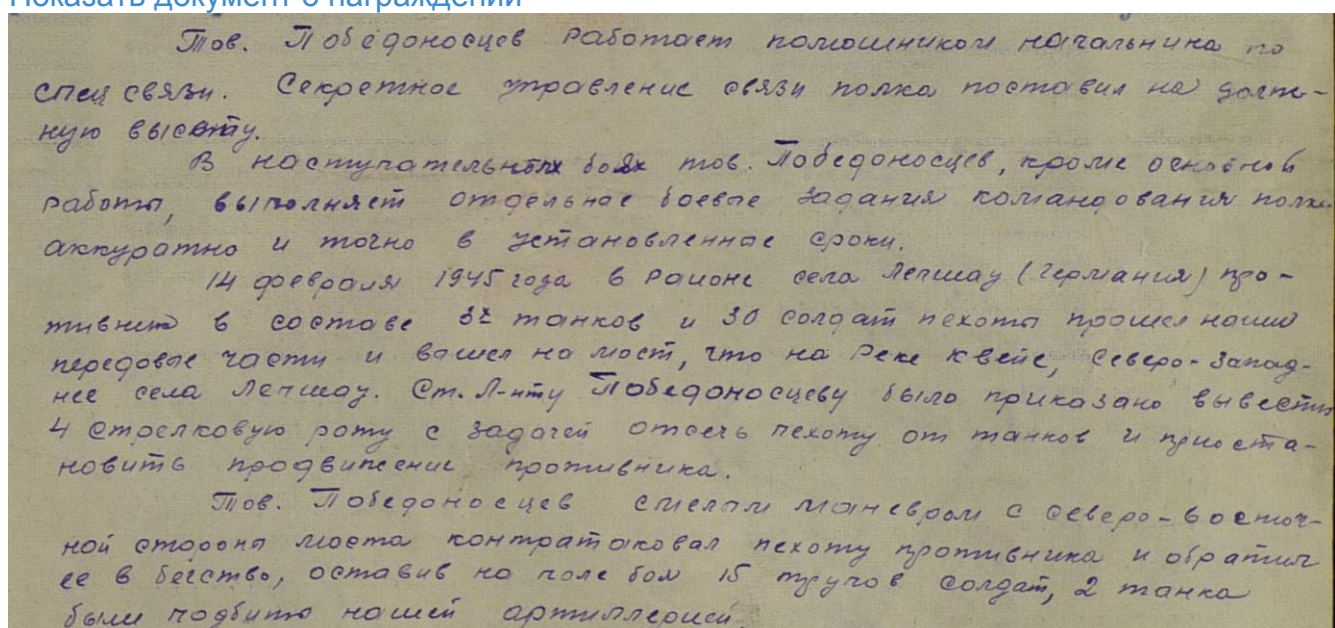 Показать документ о награждении
Тов. Победоносцев работает помошником начальника по
спец связи. Секретное управление связи полка поставил на долж-
ную высоту.
В наступательных боях тов. Победоносцев, кроме основной
работы, выполняет отдельные боевые задания командования полка
аккуратно и точно в установленные сроки.
14 февраля 1945 года в районе села Лепшау (Германия) про-
тивник в составе танков и 30 солдат пехоты прошел наши
передовые части и вышел на мост, что на реке Квейс, Северо-Запад-
нее села Лепшау. Ст. Л-нту Победоносцеву было приказано вывести
4 стрелковую роту с задачей отсечь пехоту от танков и приоста-
новить продвижение противника.
Тов. Победоносцев смелым маневром с северо-восточ-
ной стороны моста контратаковал пехоту противника и обратил
ее в бегство, оставив на поле боя 15 трупов солдат, 2 танка
были подбиты нашей артиллерией.